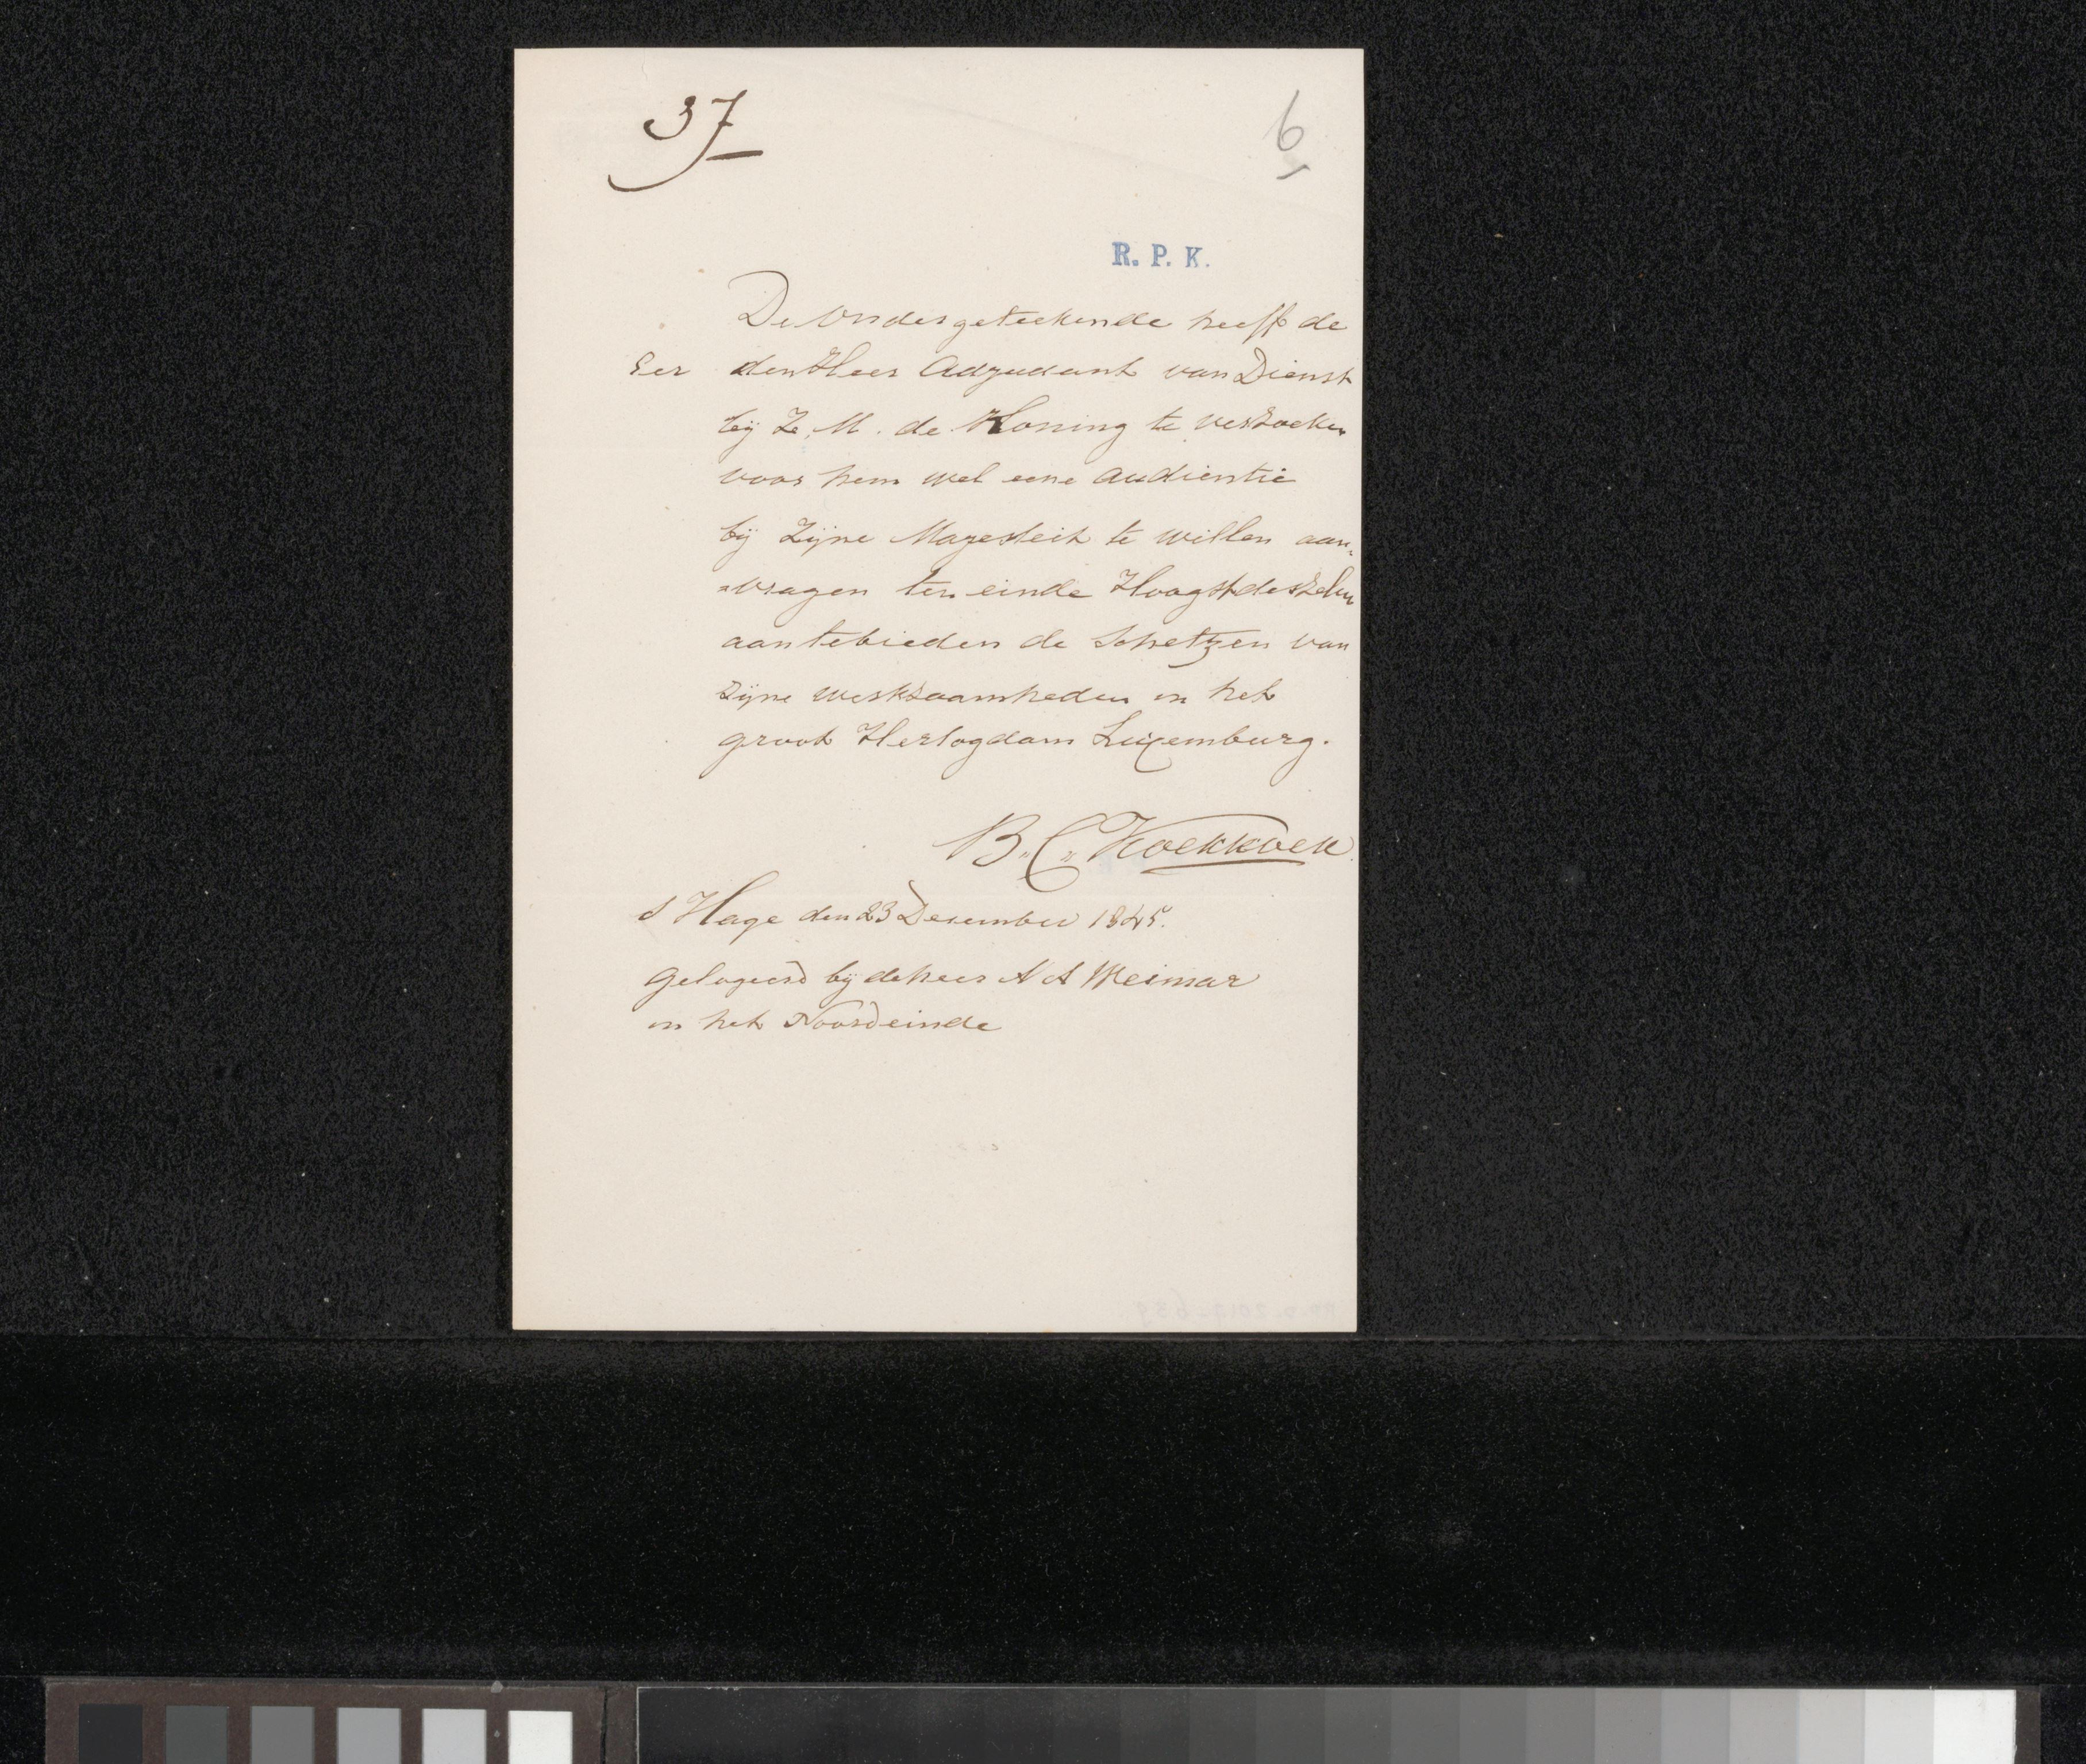 37
6
R. P. K.
De Ondergeteekende heeft de
Eer den Heer Adzudant van Dienst
bij Ze. M. de Koning te verzoeken
voor hem wel eene audientie
bij Zijne Mayesteit te willen aan=
=vragen ten einde Hoogstdezelve
aantebieden de Schetzen van
zijne werkzaamheden in het
groot Hertogdom Luxemburg.
B. C. Koekkoek
s Hage den 23 December 1845.
gelogeerd bij de heer A A Weimar
in het Noordeinde